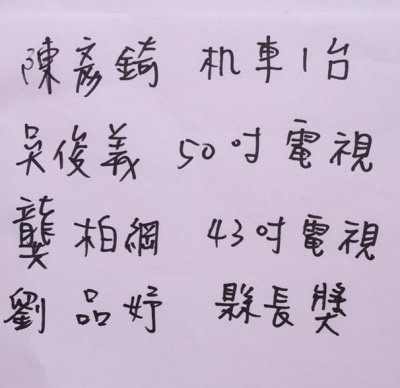 陳彥錡 机車1台
吳俊義 50吋電視
龔柏綱 43吋電視
劉品妤 縣長獎